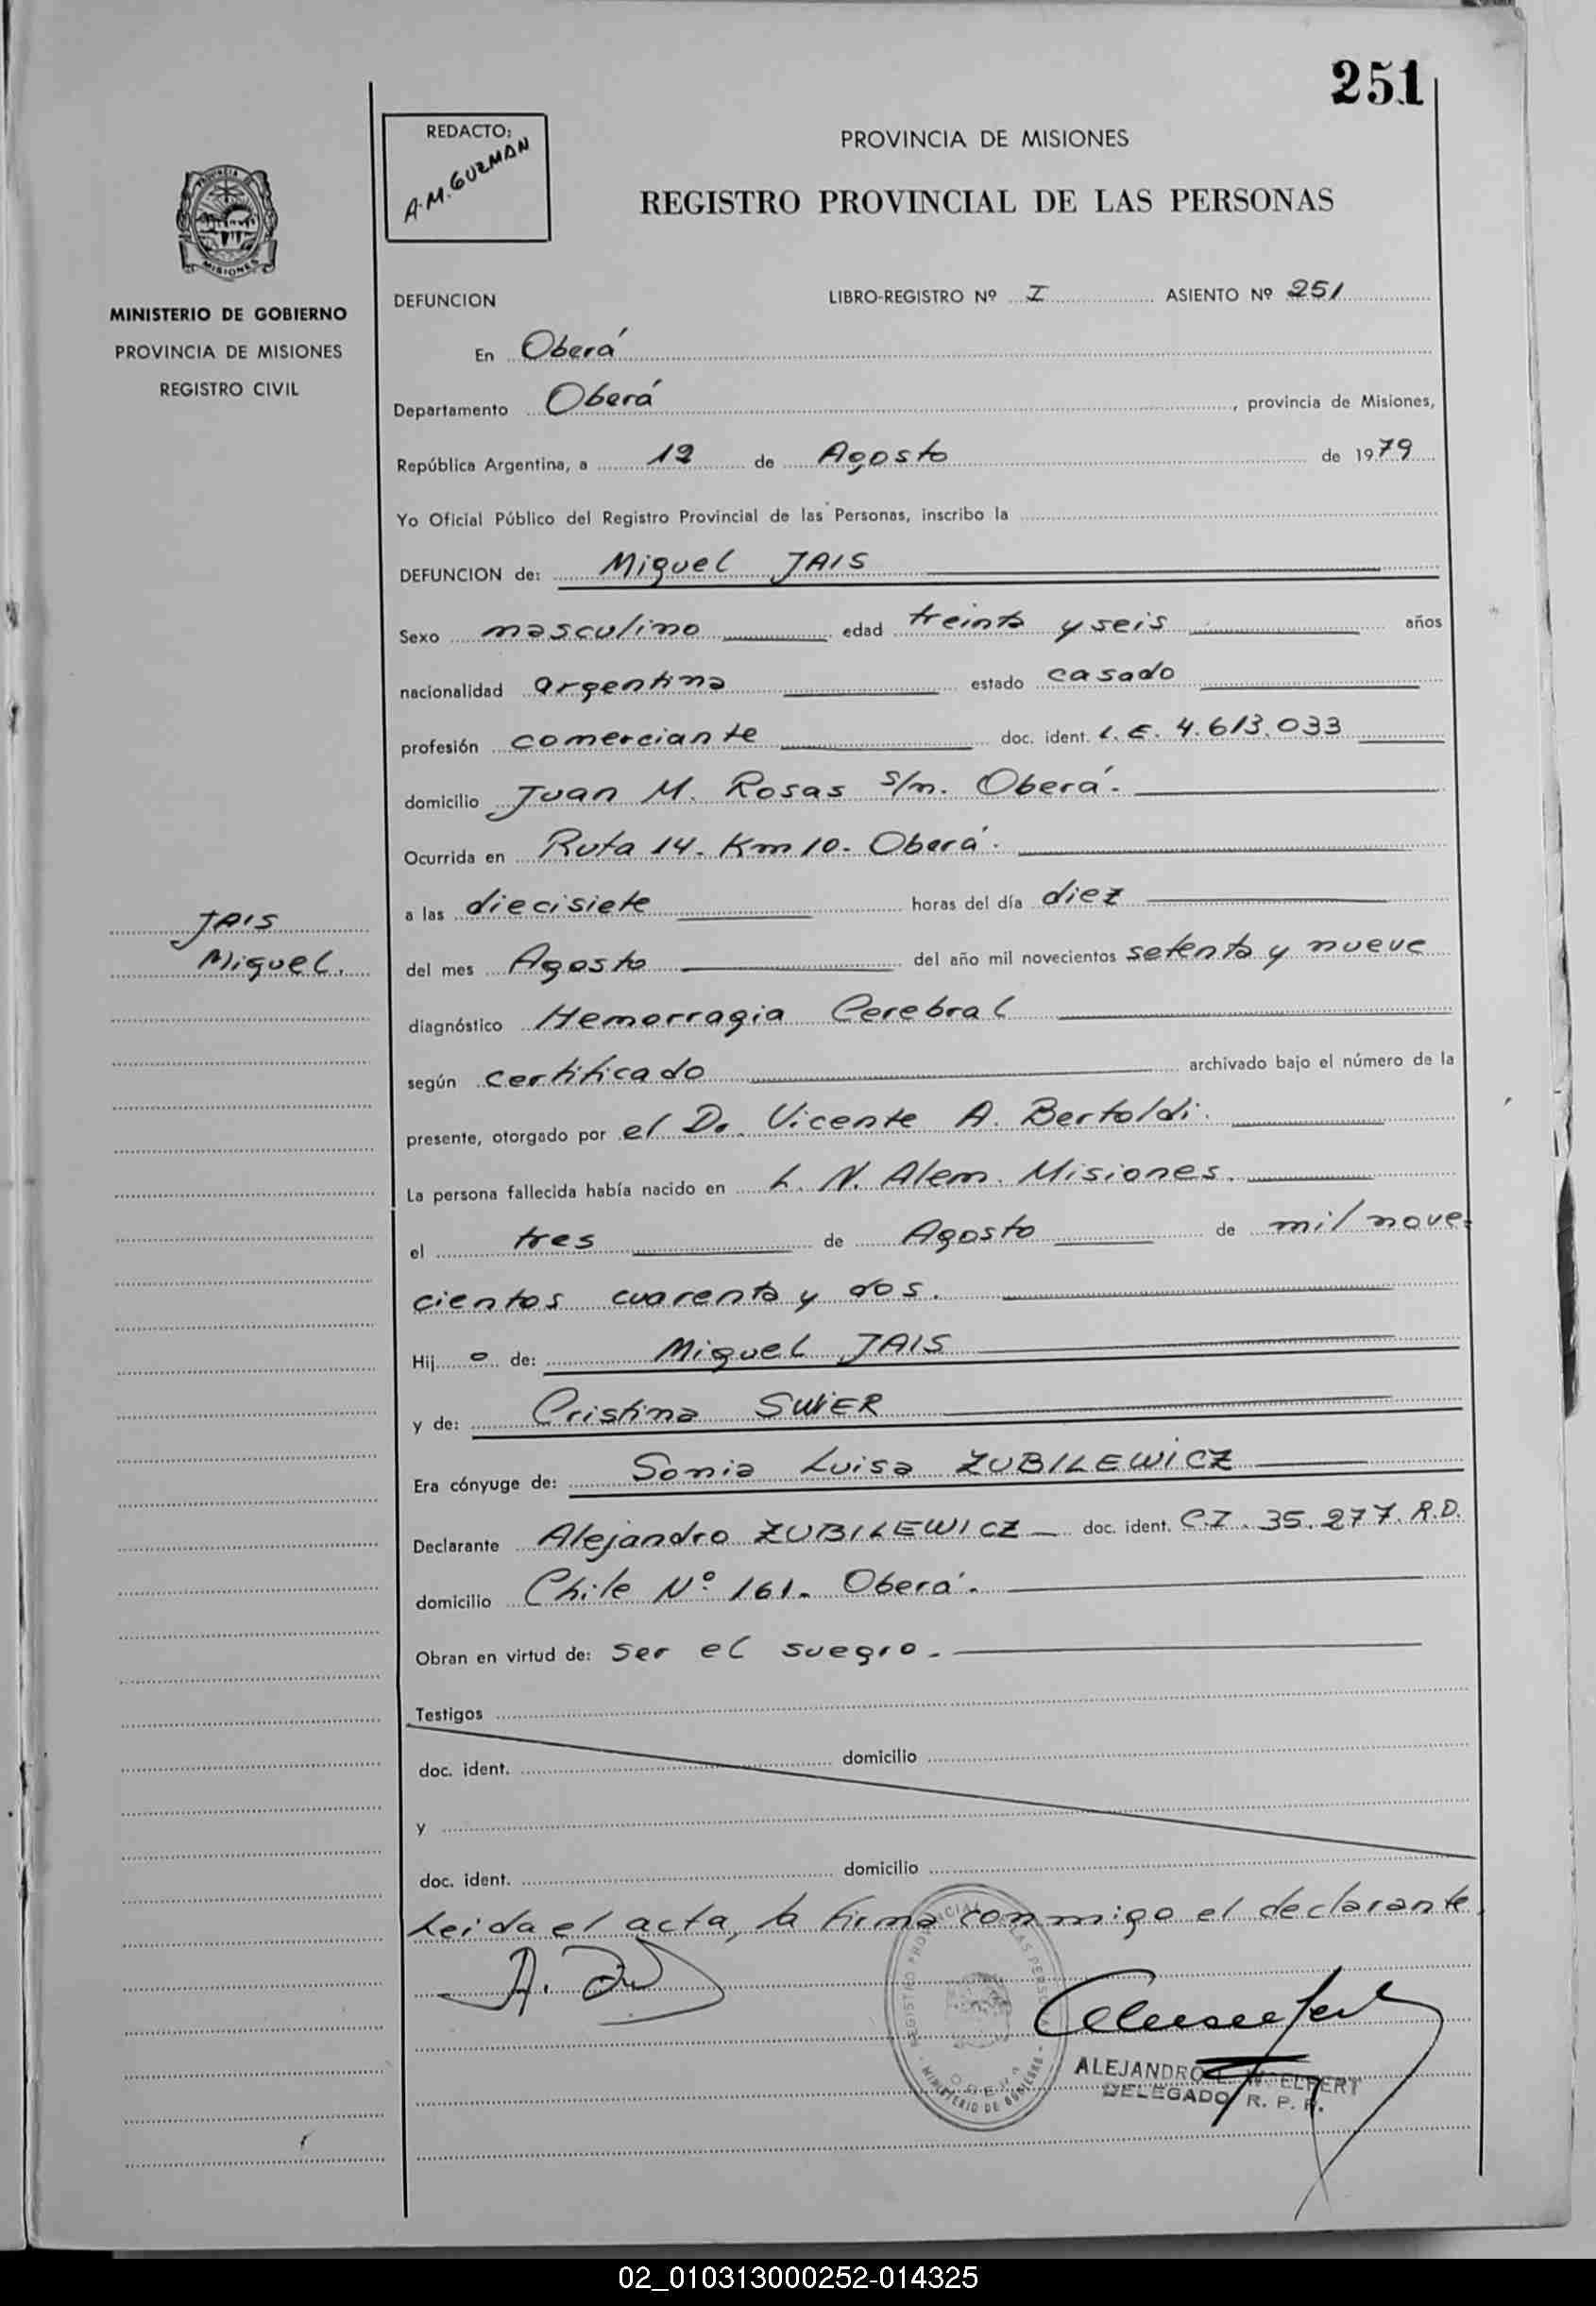 251
REDACTO:
A. M. GUZMAN
PROVINCIA DE MISIONES
REGISTRO PROVINCIAL DE LAS PERSONAS
MISIONES
MINISTERIO DE GOBIERNO
PROVINCIA DE MISIONES
REGISTRO CIVIL
DEFUNCION LIBRO-REGISTRO Nº I ASIENTO Nº 251
En Oberá
Departamento Oberá, provincia de Misiones,
República Argentina, a 12 de Agosto de 1979
Yo Oficial Público del Registro Provincial de las Personas, inscribo la
DEFUNCION de: Miguel JAIS
Sexo masculino edad treinta y seis años
nacionalidad argentina estado casado
profesión comerciante doc. ident. L. E. 4.613.033
domicilio Juan M. Rosas s/n. Oberá.
Ocurrida en Ruta 14. Km 10. Oberá.
a las diecisiete horas del día diez
JAIS
Miguel.
del mes Agosto del año mil novecientos setenta y nueve
diagnóstico Hemorragia Cerebral
según certificado archivado bajo el número de la
presente, otorgado por el Dr. Vicente A. Bertoldi.
La persona fallecida había nacido en L. N. Alem. Misiones.
el tres de Agosto de mil nove-
cientos cuarenta y dos.
Hijo de: Miguel JAIS
y de: Cristina SWIER
Era cónyuge de: Sonia Luisa ZUBILEWICZ
Declarante Alejandro ZUBILEWICZ doc. ident. C.I. 35.277. R.D.
domicilio Chile Nº 161. Oberá.
Obran en virtud de: ser el suegro.
Testigos
doc. ident. domicilio
y
doc. ident. domicilio
Leida el acta, la firma conmigo el declarante.
ALEJANDRO ELPERT
DELEGADO R. P. P.
02_010313000252-014325